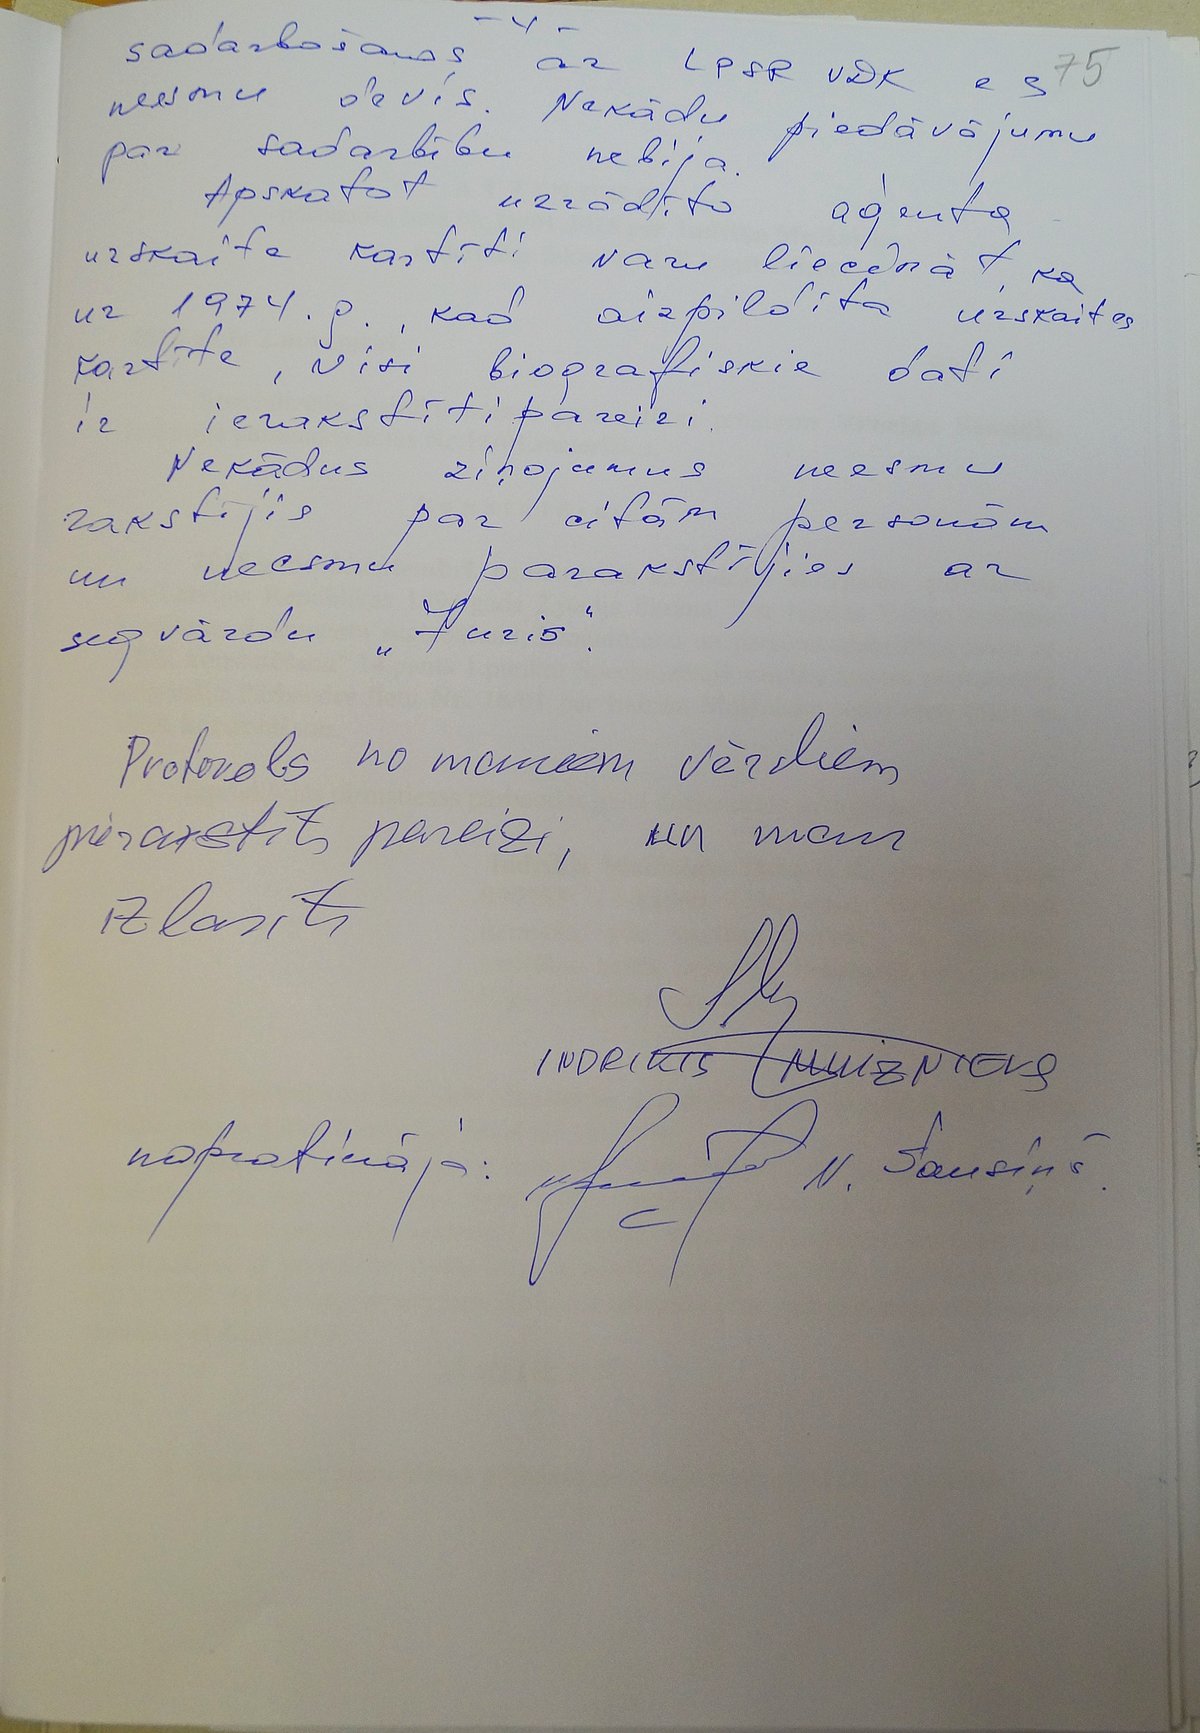 - 4 -
75
sadarbošanos ar LPSR VDK es
neesmu devis. Nekādu piedāvājumu
par sadarbību nebija.
Apskatot uzrādīto aģenta
uzskaite kartīti varu liecināt, ka
uz 1974.g., kad aizpildīta uzskaites
kartīte, visi biogrāfiskie dati
ir ierakstīti pareizi.
Nekādus ziņojumus neesmu
rakstījis par citām personām
un neesmu parakstījies ar
segvārdu „Juris“.
Protokols no maniem vārdiem
pierakstīts pareizi, un man
izlasīts
INDRIĶIS MUIŽNIEKS
nopratināja: N. Šausiņš.